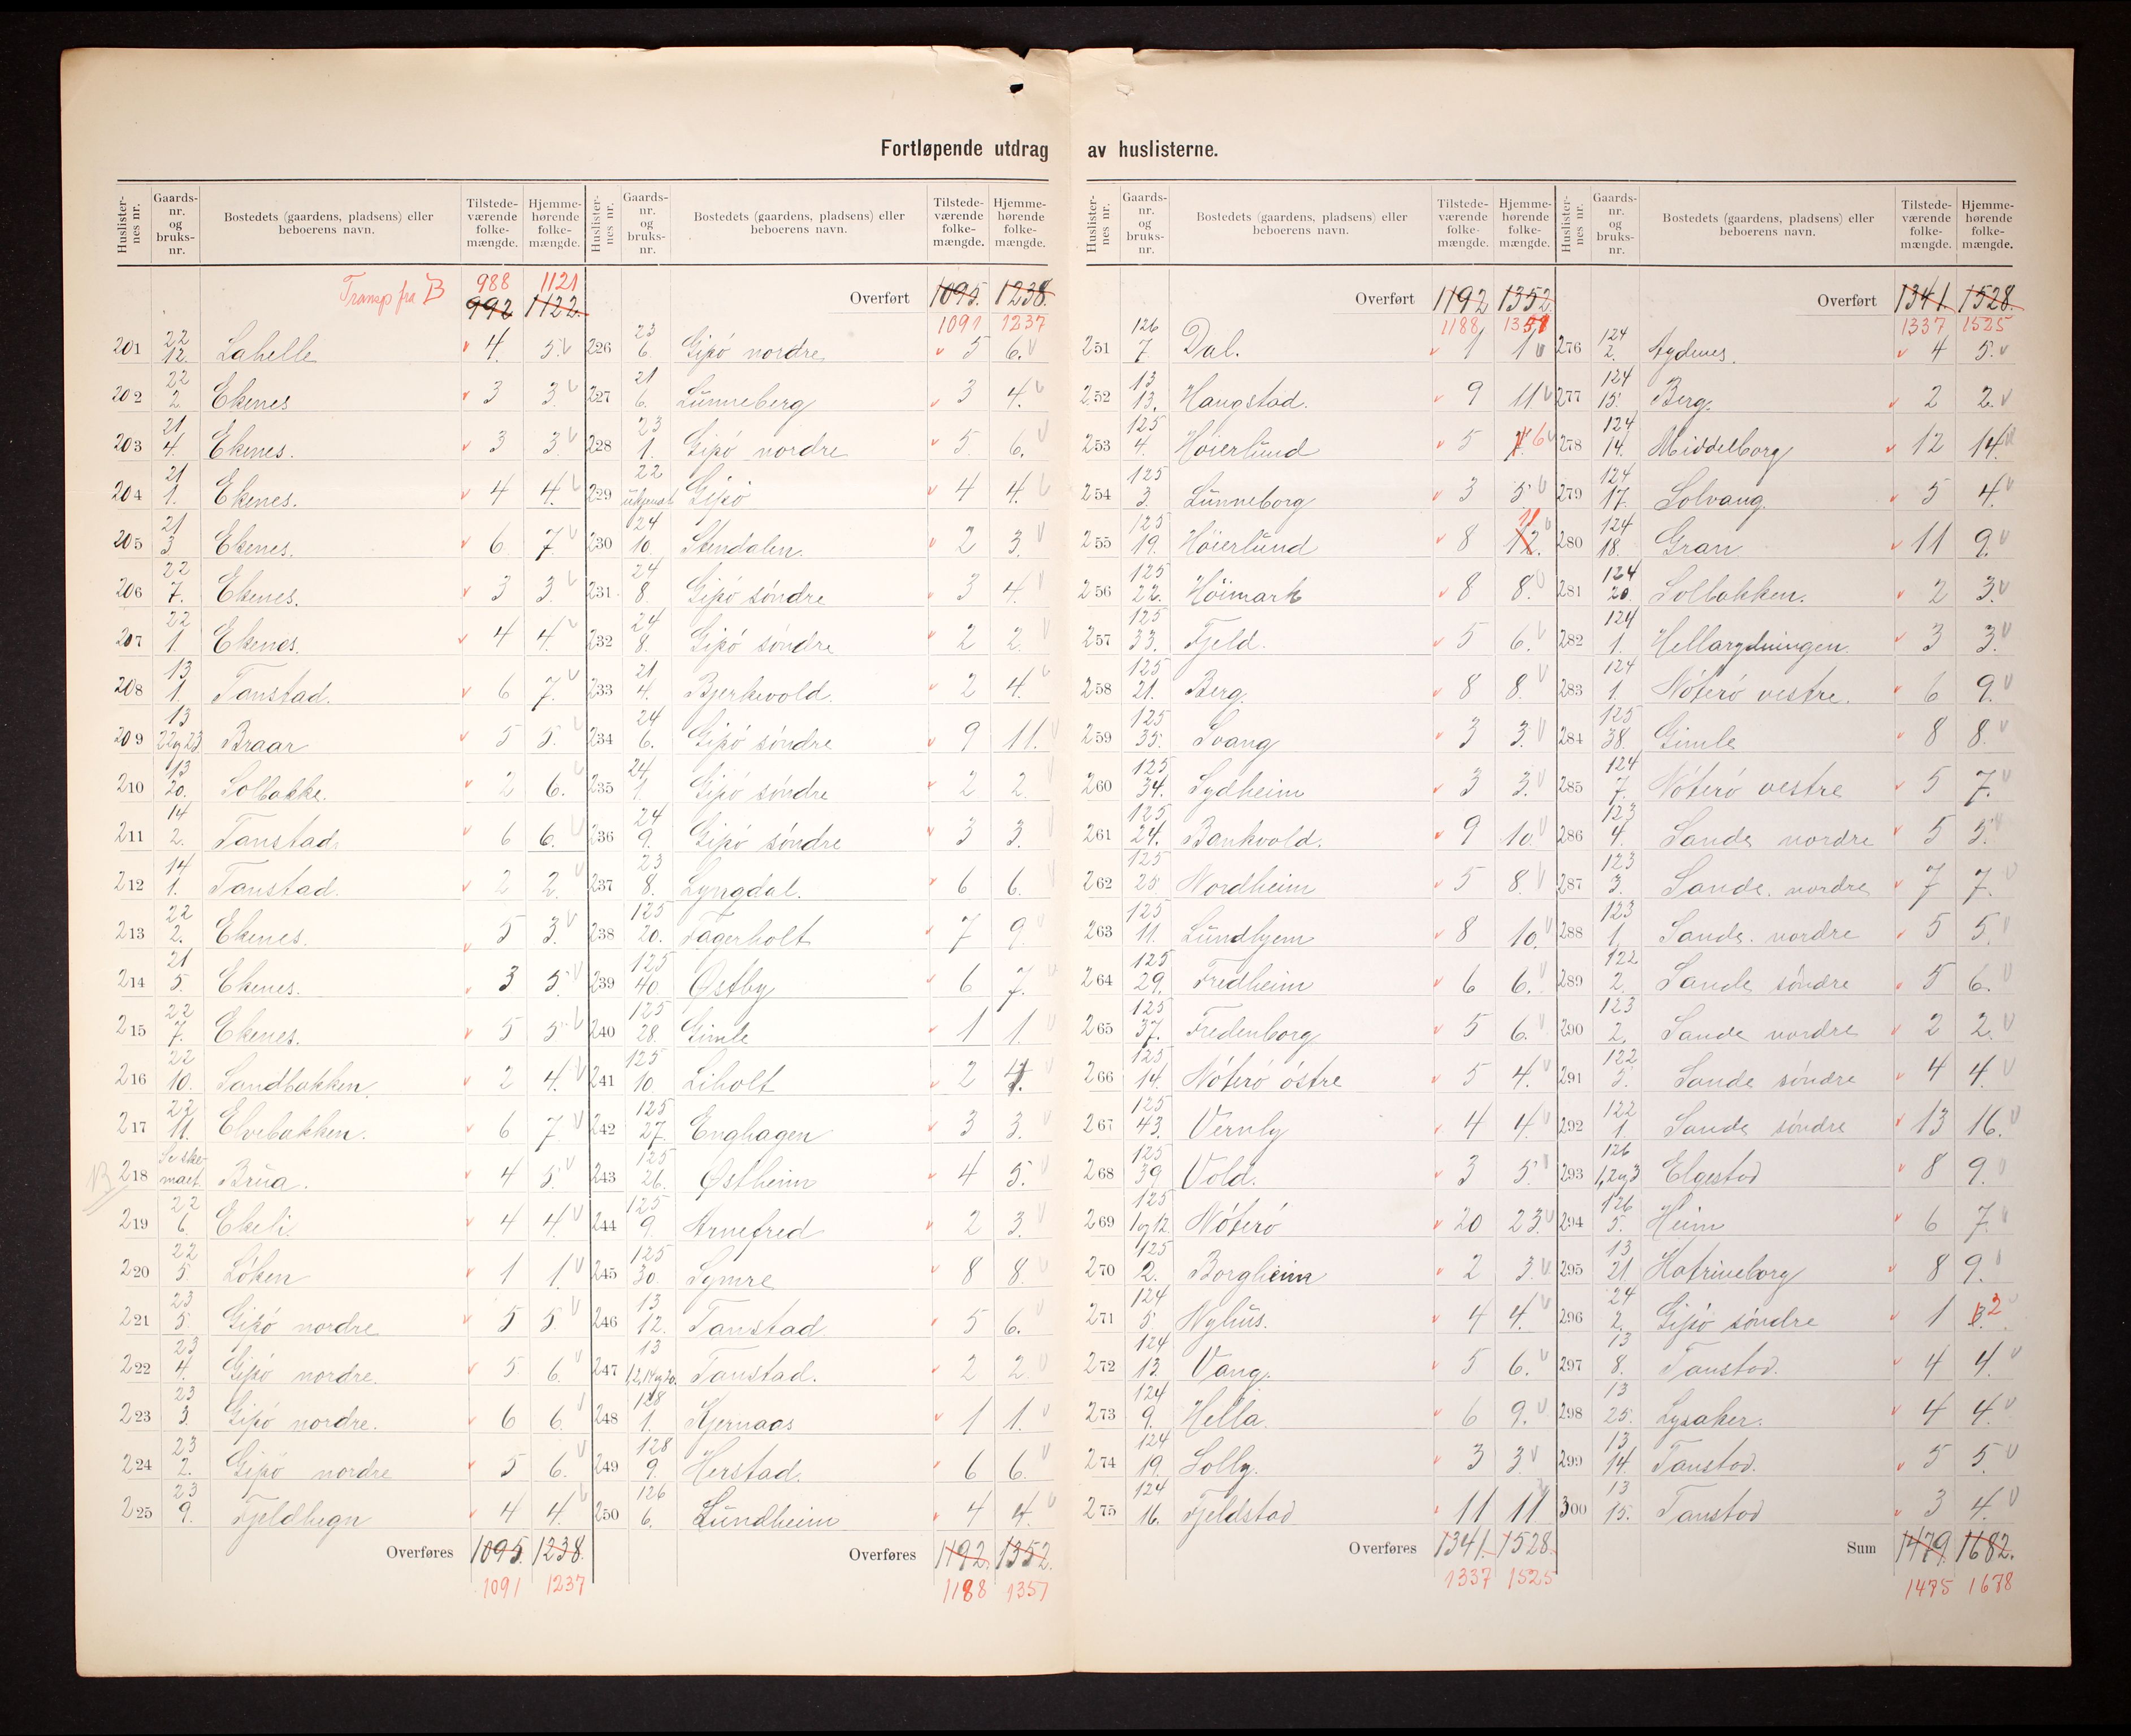 Fortløpende utdrag av huslisterne.
Huslister-nes nr. | Gaards-nr. og bruks-nr. | Bostedets (gaardens, pladsens) eller beboerens navn. | Tilstede-værende folke-mængde. | Hjemme-hørende folke-mængde.
Transp fra B 988 1121
992 1122.
201 22 12. Lahelle 4. 5.
202 22 2 Ekenes 3 3.
203 21 4. Ekenes. 3 3.
204 21 1. Ekenes. 4 4.
205 21 3 Ekenes. 6 7.
206 22 7. Ekenes. 3 3.
207 22 1. Ekenes. 4 4.
208 13 1. Tanstad. 6 7.
209 13 22og23 Braar 5 5.
210 13 20. Solbakke. 2 6.
211 14 2. Tanstad. 6 6.
212 14 1. Tanstad. 2 2.
213 22 2. Ekenes. 5 3.
214 21 5. Ekenes. 3 5.
215 22 7. Ekenes. 5 5.
216 22 10. Sandbakken. 2 4.
217 22 11. Elvebakken. 6 7.
218 Brua. 4 5.
219 22 6. Ekeli. 4 4.
220 22 5. Löken 1 1.
221 23 5. Gipö nordre 5 5.
222 23 4. Gipö nordre. 5 6.
223 23 3. Gipö nordre. 6 6.
224 23 2. Gipö nordre 5 6.
225 23 9. Fjeldhegn 4 4.
Overføres 1095. 1238.
1091 1237
Huslister-nes nr. | Gaards-nr. og bruks-nr. | Bostedets (gaardens, pladsens) eller beboerens navn. | Tilstede-værende folke-mængde. | Hjemme-hørende folke-mængde.
Overført 1095. 1238.
1091 1237
226 23 6. Gipö nordre 5 6.
227 21 6. Lunneberg 3 4.
228 23 1. Gipö nordre 5. 6.
229 22 ukjendt Gipö 4 4.
230 24 10. Stendalen. 2 3.
231 24 8. Gipö söndre 3 4.
232 24 8. Gipö söndre 2 2.
233 21 4. Bjerkevold. 2 4.
234 24 6. Gipö söndre 9 11.
235 24 1. Gipö söndre 2 2.
236 24 9. Gipö söndre 3 3.
237 23 8. Lyngdal. 6 6.
238 125 20. Fagerholt 7 9.
239 125 40 Østby 6 7.
240 125 28. Gimle 1 1.
241 125 10 Liholt 2 4.
242 125 27. Enghagen 3 3.
243 125 26. Østheim 4 5.
244 125 9. Arnefred 2 3.
245 125 30. Symre 8 8.
246 13 12. Tanstad 5 6.
247 13 1,2,14og20. Tanstad. 2 2.
248 128 1. Kjernaas 1 1.
249 128 9. Herstad. 6 6.
250 126 6. Lundheim 4 4.
Overføres 1192. 1352.
1188 1351
Huslister-nes nr. | Gaards-nr. og bruks-nr. | Bostedets (gaardens, pladsens) eller beboerens navn. | Tilstede-værende folke-mængde. | Hjemme-hørende folke-mængde.
Overført 1192 1352.
1188 1351
251 126 7. Dal. 1 1
252 13 13. Haugstad. 9 11
253 125 4. Höierlund 5 6
254 125 3. Lunneborg 3 5.
255 125 19. Höierlund 8 12. 11
256 125 22. Höimark 8 8.
257 125 33. Fjeld. 5 6.
258 125 21. Berg. 8 8.
259 125 35. Svang 3 3.
260 125 34. Sydheim 3 3.
261 125 24. Bankvold. 9 10.
262 125 25 Nordheim 5 8.
263 125 11. Lundhjem 8 10.
264 125 29. Fredheim 6 6.
265 125 37. Fredenborg 5 6.
266 125 14. Nöterö östre 5 4.
267 125 43. Vernly 4 4.
268 125 39 Vold. 3 5.
269 125 1og12. Nöterö 20 23.
270 125 2. Borgheim 2 3.
271 124 5. Nyhus. 4 4.
272 124 13. Vang. 5 6.
273 124 9. Hella. 6 9.
274 124 19. Solby. 3 3
275 124 16. Fjeldstad 11 11
Overføres 1341. 1528.
1337 1525
Huslister-nes nr. | Gaards-nr. og bruks-nr. | Bostedets (gaardens, pladsens) eller beboerens navn. | Tilstede-værende folke-mængde. | Hjemme-hørende folke-mængde.
Overført 1341. 1528.
1337 1525
276 124 2. Agdenes. 4 5.
277 124 15. Berg. 2 2.
278 124 14. Middelborg 12 14.
279 124 17. Solvang. 5 4.
280 124 18. Gran 11 9.
281 124 20. Solbakken. 2 3.
282 124 1. Hellarydningen. 3 3.
283 124 1. Nöterö vestre. 6 9.
284 125 38. Gimle 8 8.
285 124 7. Nöterö vestre 5 7.
286 123 4. Sande nordre 5 5.
287 123 3. Sande. nordre 7 7.
288 123 1. Sande. nordre 5 5.
289 122 2. Sande söndre 5 6.
290 123 2. Sande nordre 2 2.
291 122 5. Sande söndre 4 4.
292 122 1 Sande söndre 13 16.
293 126 1,2og3 Elgestad 8 9.
294 126 5. Heim 6 7.
295 13 21. Katrineborg 8 9.
296 24 2. Gipö söndre 1 3. 2
297 13 8. Tanstad. 4 4.
298 13 25. Lysaker. 4 4.
299 13 14. Tanstad. 5 5.
300 13 15. Tanstad 3 4.
Sum 1479. 1682.
1475 1678